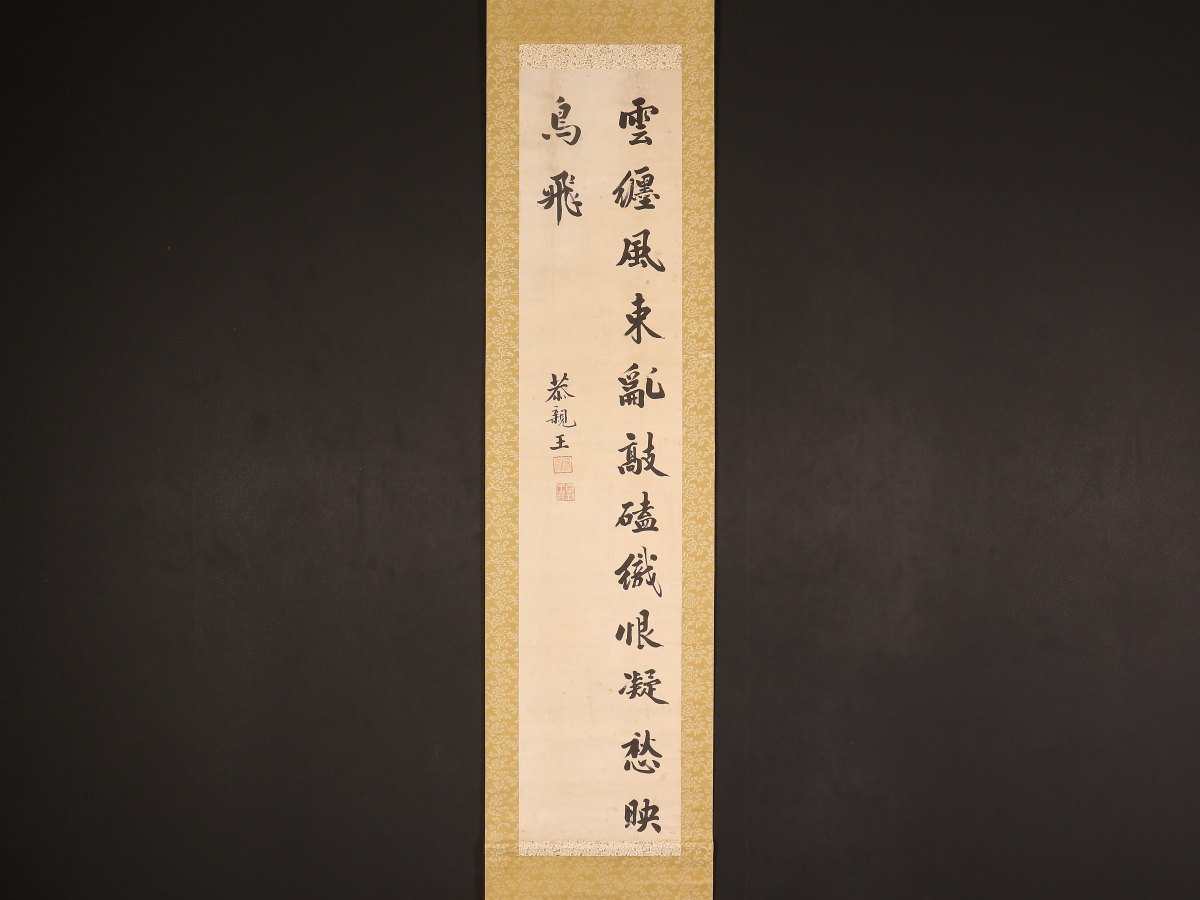 雲纏風束亂敲磕織恨凝愁映
鳥飛
恭親王